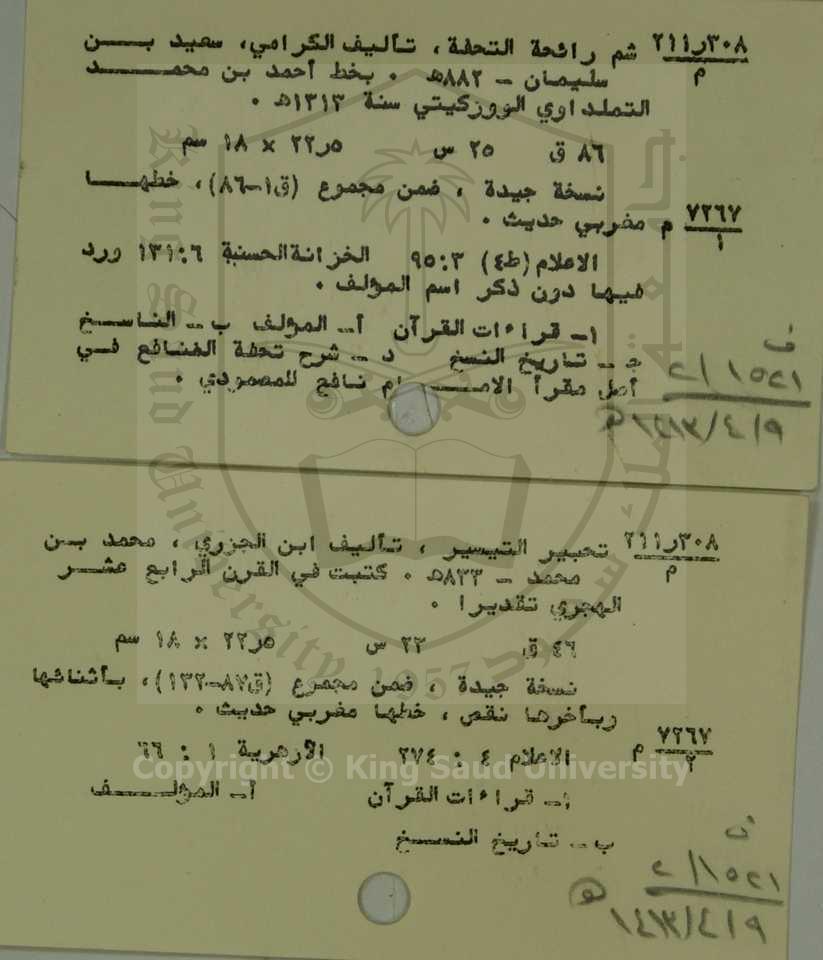 ٢١١٫٣٠٨ شم رائحة التحفة ، تأليف الكرامي، سعيد بن
م سليمان - ٨٨٢هـ . بخط أحمد بن محمد
التملداوي الووزكيتي سنة ١٣١٣هـ .
٨٦ ق ٢٥ س ٢٢٫٥ × ١٨ سم
نسخة جيدة ، ضمن مجموع (ق١-٨٦)، خطها
٧٢٦٧ م مغربي حديث .
١
الاعلام (ط٤) ٩٥:٣ الخزانة الحسنية ١٣١:٦ ورد
فيها دون ذكر اسم المؤلف .
١- قراءات القرآن أ- المؤلف ب - الناسخ
ج - تاريخ النسخ د - شرح تحفة المنافع في
أصل مقرأ الامام نافع للمصمودي .
ف ١٥٢١/٢
١٤١٣/٤/٩هـ
٢١١٫٣٠٨ تحبير التيسير ، تأليف ابن الجزري ، محمد بن
م محمد - ٨٣٣هـ . كتبت في القرن الرابع عشر
الهجري تقديرا .
٤٦ ق ٢٣ س ٢٢٫٥ × ١٨ سم
نسخة جيدة ، ضمن مجموع (ق٨٧-١٣٢)، بأثنائها
وبآخرها نقص ، خطها مغربي حديث .
٧٢٦٧ م
٢
الاعلام ٤ : ٢٧٤ الأزهرية ١ : ٦٦
١- قراءات القرآن أ- المؤلف
ب - تاريخ النسخ
ف ١٥٢١/٢
١٤١٣/٤/٩ هـ
King Saud University 1957
Copyright © King Saud University